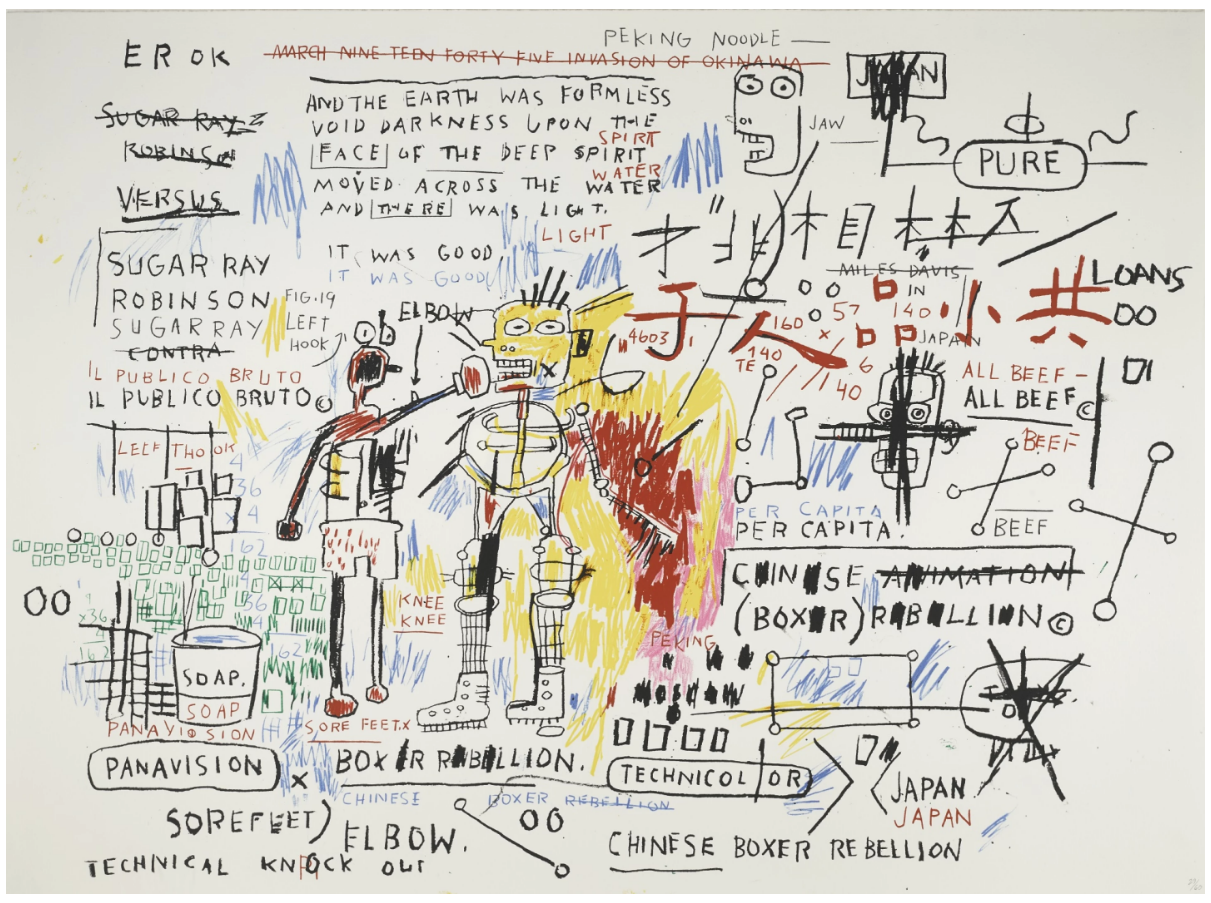 PEKING NOODLE —
EROK
MARCH NINE TEEN FORTY FIVE INVASION OF OKINAWA
JAPAN
SUGAR RAY
ROBINSON
VERSUS
AND THE EARTH WAS FORMLESS
VOID DARKNESS UPON THE
SPIRIT
FACE OF THE DEEP SPIRIT
WATER
MOVED ACROSS THE WATER
AND THERE WAS LIGHT.
LIGHT
JAW
PURE
IT WAS GOOD
IT WAS GOOD
SUGAR RAY
ROBINSON
SUGAR RAY
CONTRA
IL PUBLICO BRUTO
IL PUBLICO BRUTO©
FIG.19
LEFT
HOOK
ELBOW
MILES DAVIS
IN
JAPAN
LOANS
00
子人口口小共
"4603"
160
57
140
x
6
140
TE
40
ALL BEEF —
ALL BEEF©
BEEF
BEEF
LEFT HOOK
4
36
x 4
162
4
36
4
162
00
x36
4
162
KNEE
KNEE
PER CAPITA
PER CAPITA.
CHINESE ANIMATION
(BOXER) REBELLION©
PEKING
MOSCOW
SOAP.
SOAP
PANAVISION
PANAVISION
x
SORE FEET.X
BOXER REBELLION.
CHINESE BOXER REBELLION
TECHNICOLOR
JAPAN
JAPAN
SOREFEET)
ELBOW.
00
CHINESE BOXER REBELLION
TECHNICAL KNOCK OUT